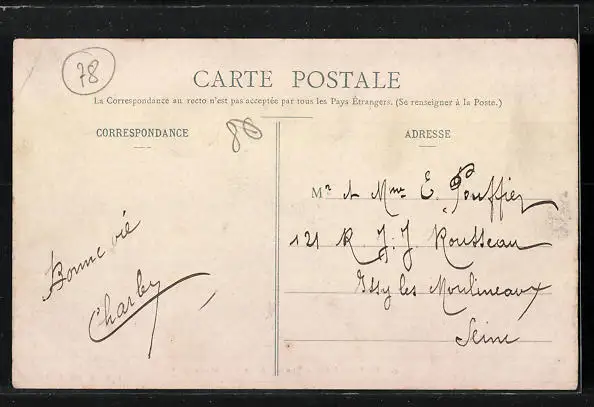 78
CARTE POSTALE
La Correspondance au recto n'est pas acceptée par tous les Pays Étrangers. (Se renseigner à la Poste.)
80
CORRESPONDANCE
ADRESSE
Bonne vie
Charley
Mr et Mme E. Pouffier
121 R J. J. Rousseau
Issy les Moulineaux
Seine